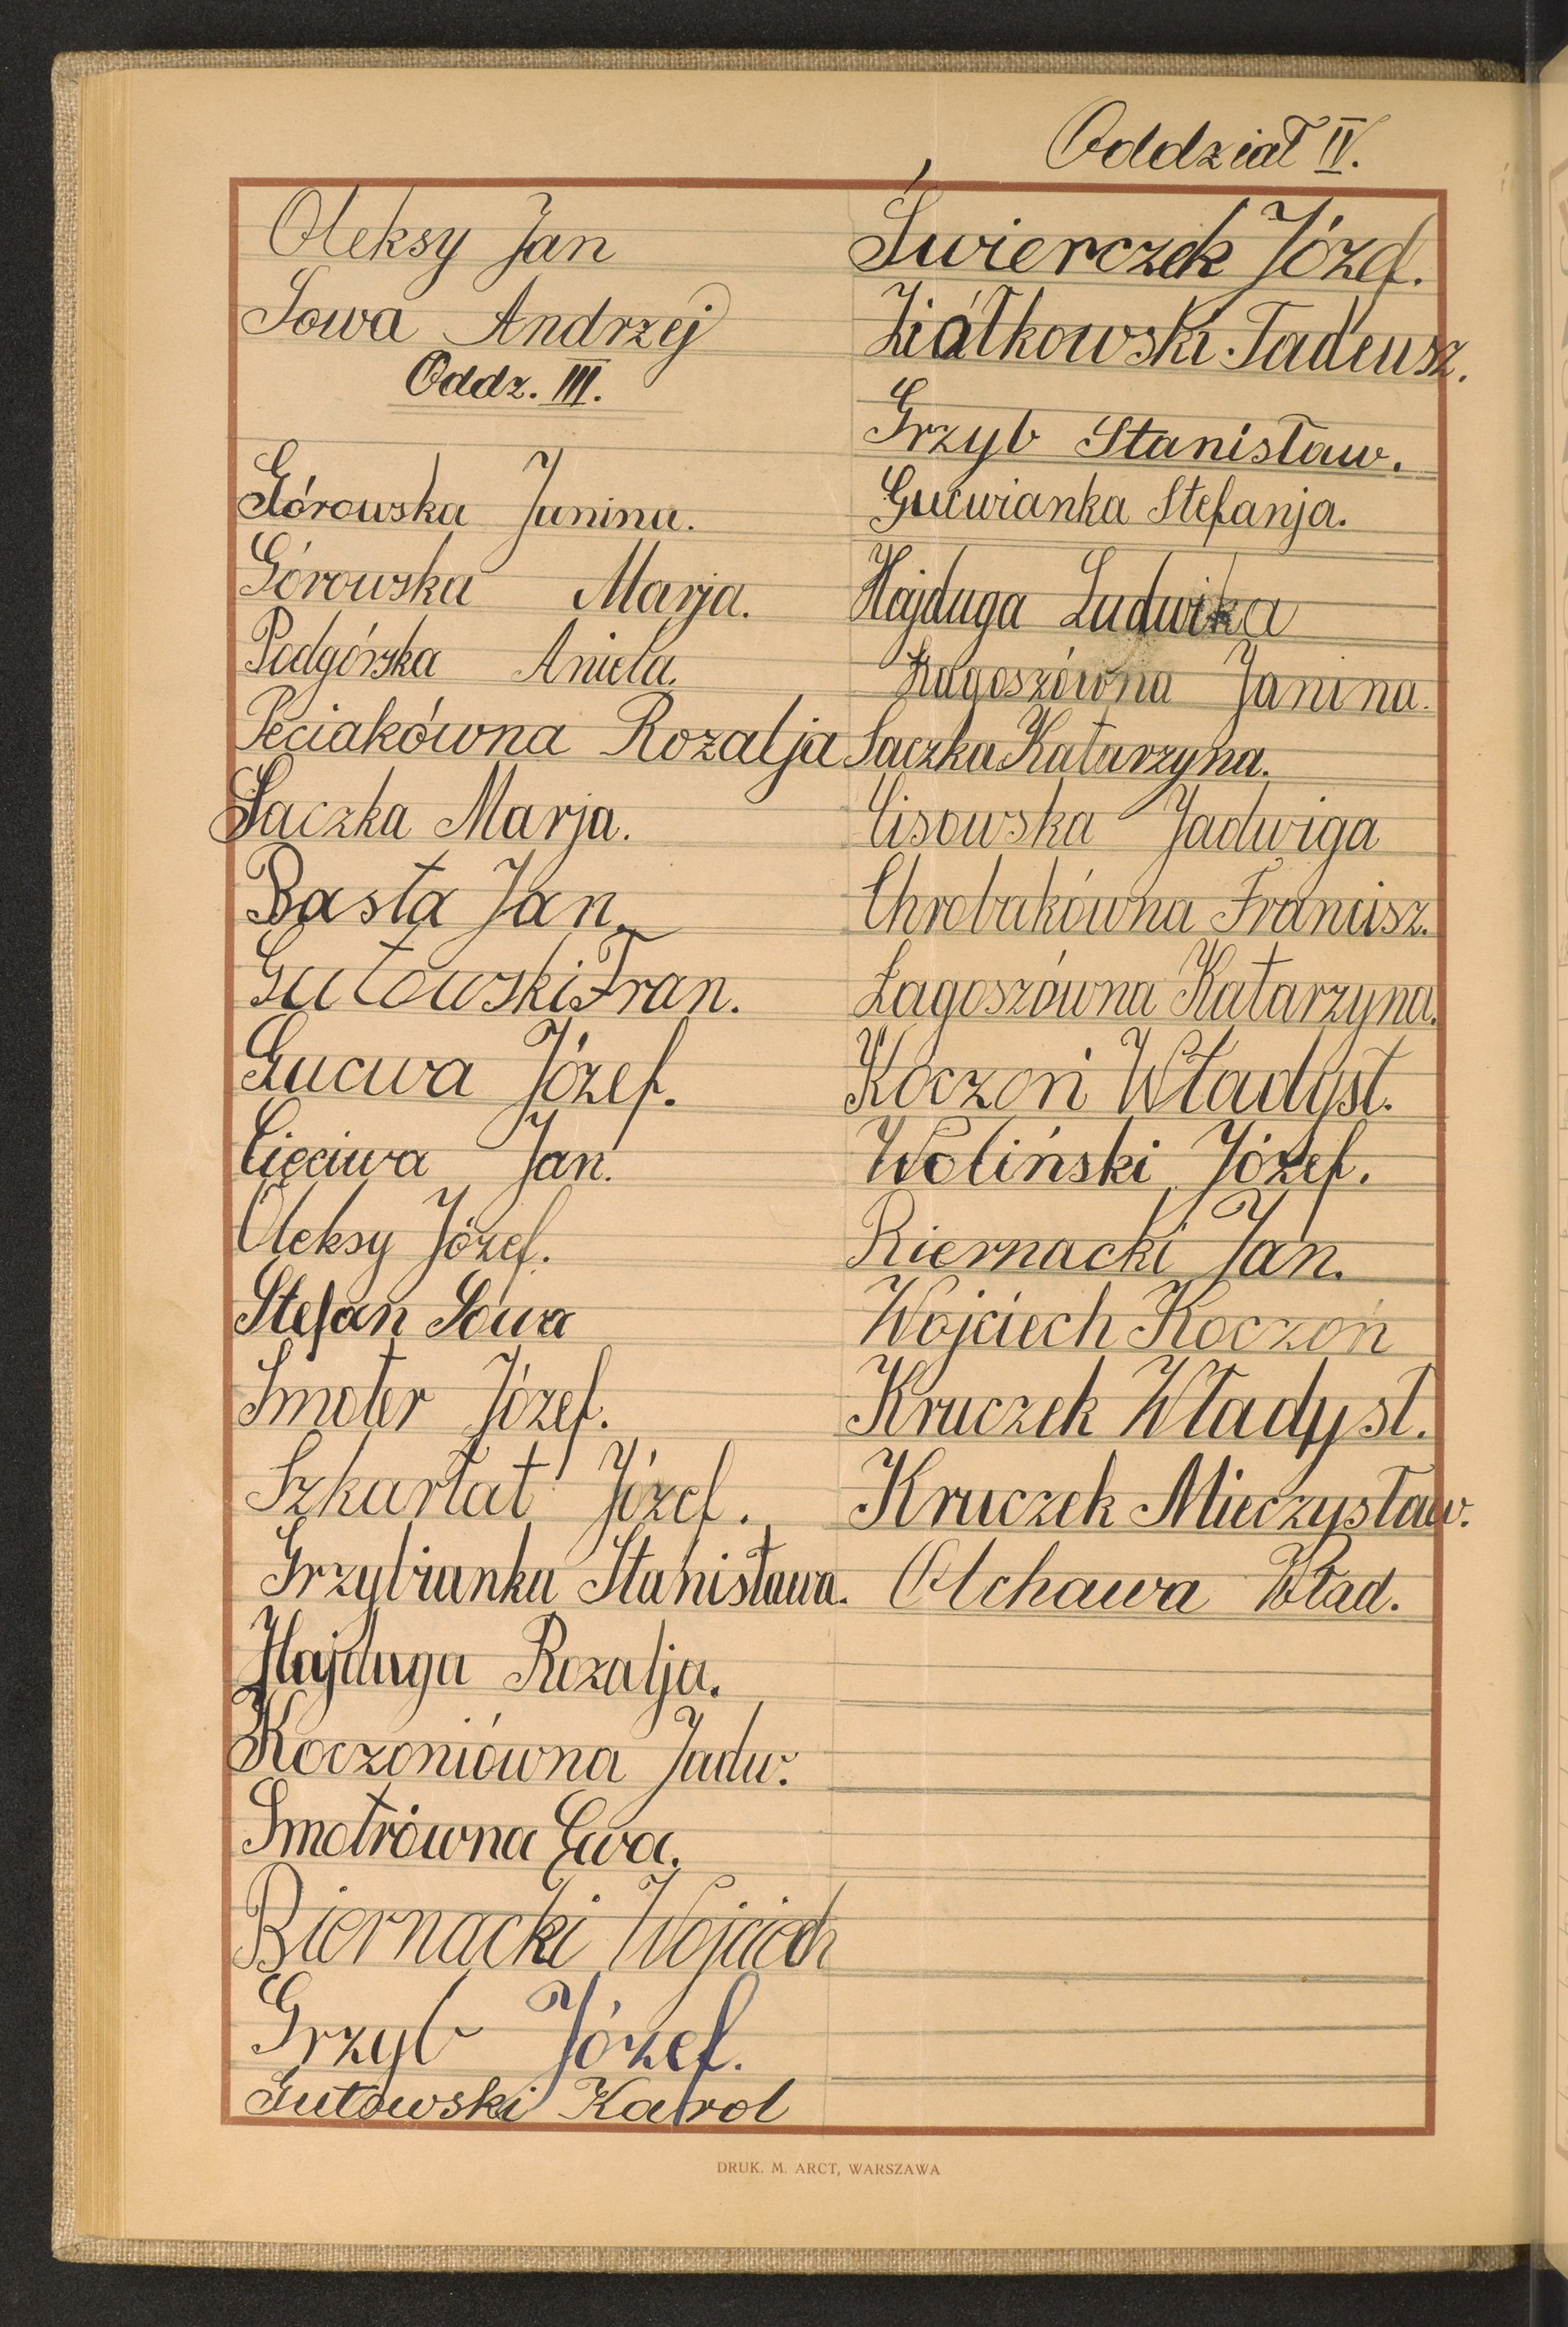 Oleksy Jan
Sowa Andrzej
Oddz. III.
Górowska Janina.
Górowska Marja.
Podgórska Aniela.
Peciakówna Rozalja
Saczka Marja.
Basta Jan.
Gutowski Fran.
Gucwa Józef.
Cięciwa Jan.
Oleksy Józef.
Stefan Sowa
Smoter Józef.
Szkarłat Józef.
Grzybianka Stanisława.
Hajduga Rozalja.
Koczoniówna Jadw.
Smotrówna Ewa.
Biernacki Wojciech
Grzyb Józef.
Gutowski Karol
Oddział IV.
Świerczek Józef.
Ziółkowski Tadeusz.
Grzyb Stanisław.
Gucwianka Stefanja.
Hajduga Ludwika
Łagoszówna Janina.
Saczka Katarzyna.
Cisowska Jadwiga
Chrobakówna Francisz.
Łagoszówna Katarzyna.
Koczoń Władysł.
Woliński Józef.
Biernacki Jan.
Wojciech Koczoń
Kruczek Władysł.
Kruczek Mieczysław.
Olchawa Wład.
DRUK. M. ARCT, WARSZAWA